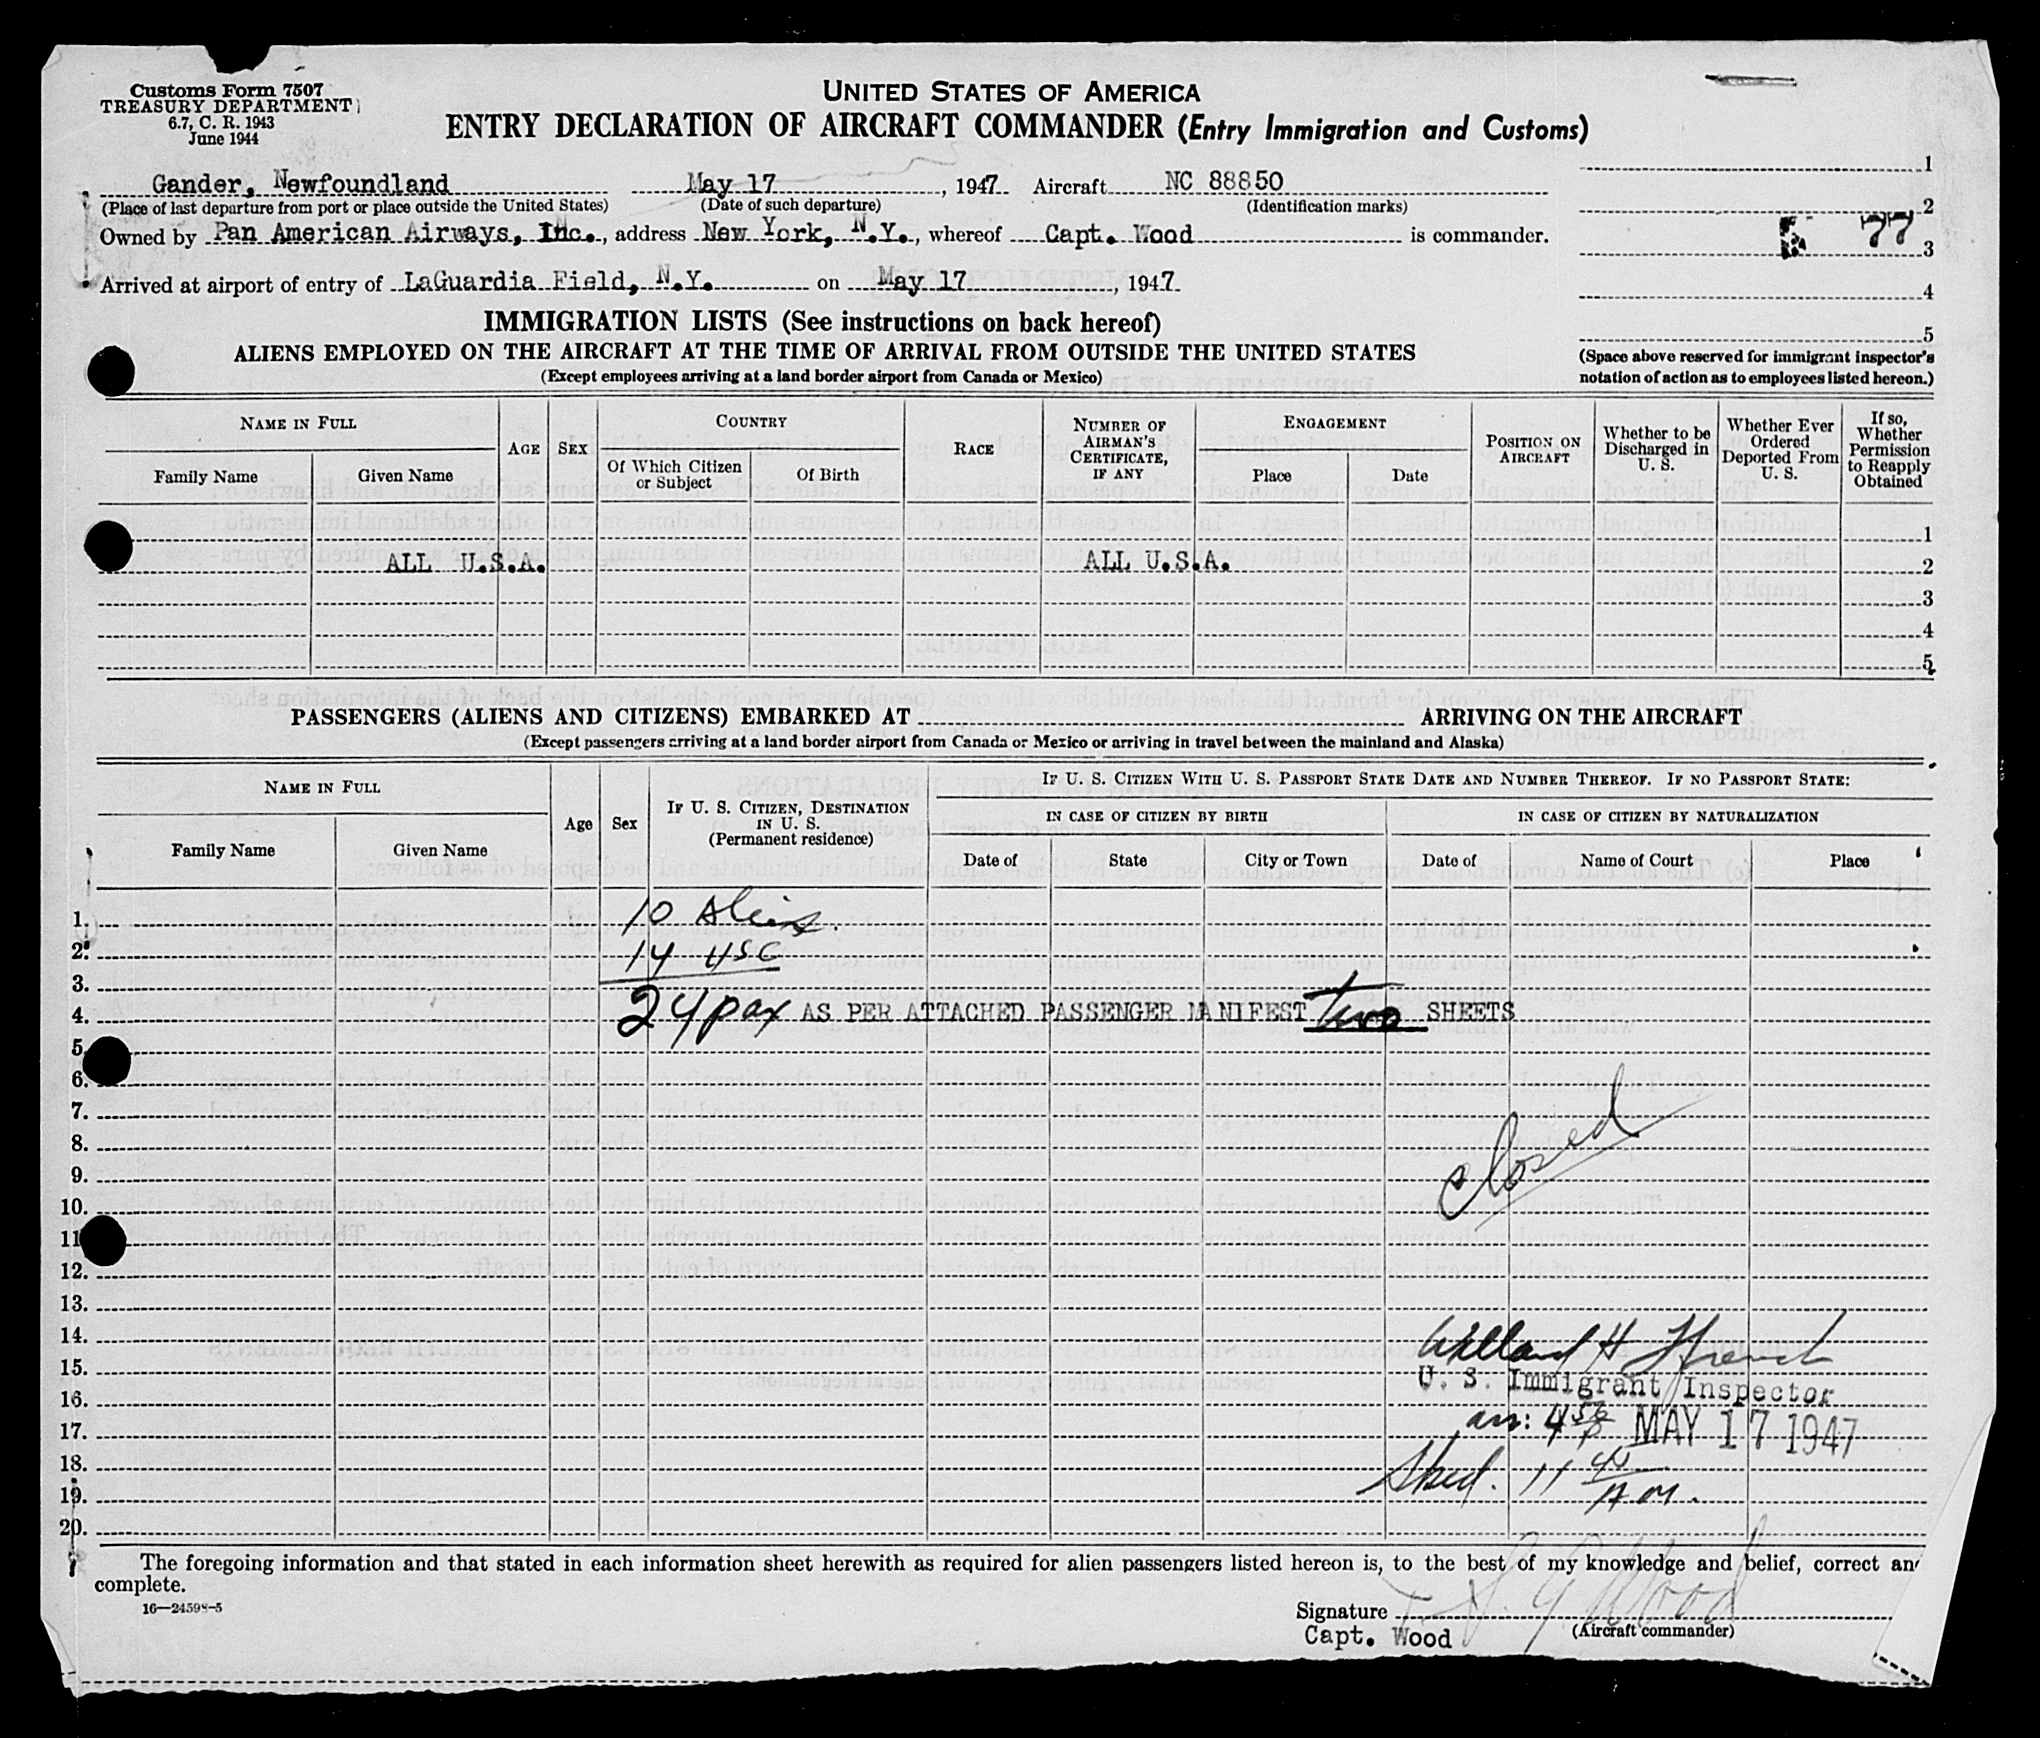 Customs Form 7507
TREASURY DEPARTMENT
6.7, C. R. 1943
June 1944
UNITED STATES OF AMERICA
ENTRY DECLARATION OF AIRCRAFT COMMANDER (Entry Immigration and Customs)
Gander, Newfoundland May 17, 1947 Aircraft NC 88850
(Place of last departure from port or place outside the United States) (Date of such departure) (Identification marks)
Owned by Pan American Airways, Inc., address New York, N.Y., whereof Capt. Wood is commander.
Arrived at airport of entry of LaGuardia Field, N.Y. on May 17, 1947
1
2
77
3
4
5
(Space above reserved for immigrant inspector's
notation of action as to employees listed hereon.)
IMMIGRATION LISTS (See instructions on back hereof)
ALIENS EMPLOYED ON THE AIRCRAFT AT THE TIME OF ARRIVAL FROM OUTSIDE THE UNITED STATES
(Except employees arriving at a land border airport from Canada or Mexico)
NAME IN FULL
Family Name Given Name
AGE
SEX
COUNTRY
Of Which Citizen or Subject
Of Birth
RACE
NUMBER OF AIRMAN'S CERTIFICATE, IF ANY
ENGAGEMENT
Place Date
POSITION ON AIRCRAFT
Whether to be Discharged in U. S.
Whether Ever Ordered Deported From U. S.
If so, Whether Permission to Reapply Obtained
1
ALL U.S.A. ALL U.S.A. 2
3
4
5
PASSENGERS (ALIENS AND CITIZENS) EMBARKED AT ARRIVING ON THE AIRCRAFT
(Except passengers arriving at a land border airport from Canada or Mexico or arriving in travel between the mainland and Alaska)
NAME IN FULL
Family Name Given Name
Age
Sex
IF U. S. CITIZEN, DESTINATION IN U. S.
(Permanent residence)
IF U. S. CITIZEN WITH U. S. PASSPORT STATE DATE AND NUMBER THEREOF. IF NO PASSPORT STATE:
IN CASE OF CITIZEN BY BIRTH IN CASE OF CITIZEN BY NATURALIZATION
Date of State City or Town Date of Name of Court Place
1. 10 Aliens.
2. 14 USC
3.
4. 24 pax AS PER ATTACHED PASSENGER MANIFEST two SHEETS
5.
6.
7.
8. closed
9.
10.
11
12.
13.
14. Willand H French
15. U. S. Immigrant Inspector
16.
17. arr: 4 56 P MAY 17 1947
18. Shed. 11 40 A M.
19.
20.
The foregoing information and that stated in each information sheet herewith as required for alien passengers listed hereon is, to the best of my knowledge and belief, correct and
complete.
16—24598-5
Signature Wood
Capt. Wood (Aircraft commander)